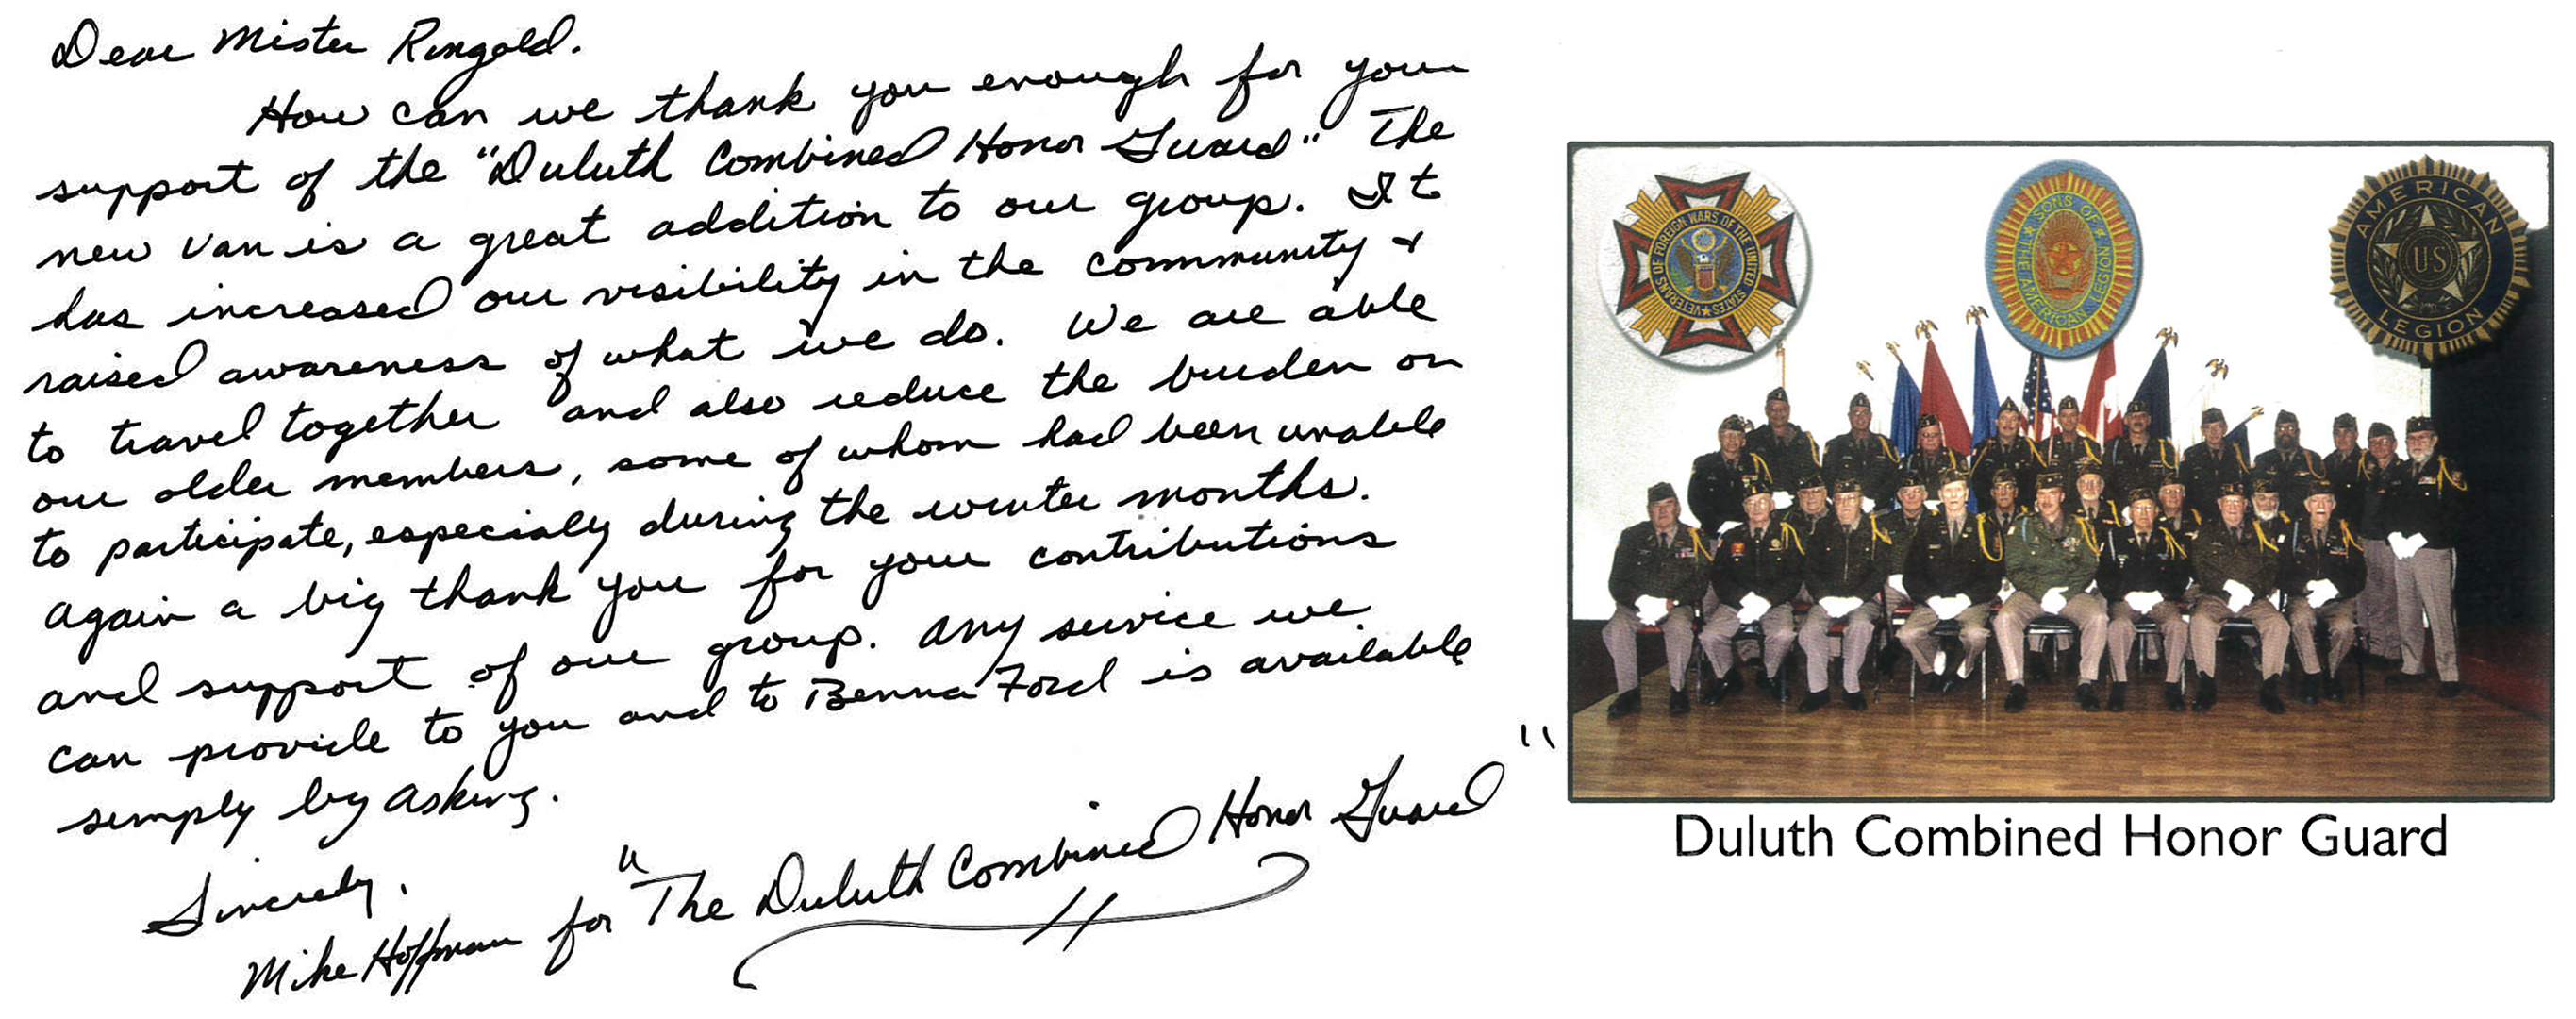 Dear Mister Ringold.
How can we thank you enough for your
support of the "Duluth Combined Honor Guard" The
new van is a great addition to our group. It
has increased our visibility in the community &
raised awareness of what we do. We are able
to travel together and also reduce the burden on
our older members, some of whom had been unable
to participate, especially during the winter months.
Again a big thank you for your contributions
and support of our group. Any service we
can provide to you and to Benna Ford is available
simply by asking.
Sincerely,
Mike Hoffman for "The Duluth Combined Honor Guard"
VETERANS OF FOREIGN WARS OF THE UNITED STATES
SONS OF
THE AMERICAN LEGION
AMERICAN
US
LEGION
Duluth Combined Honor Guard